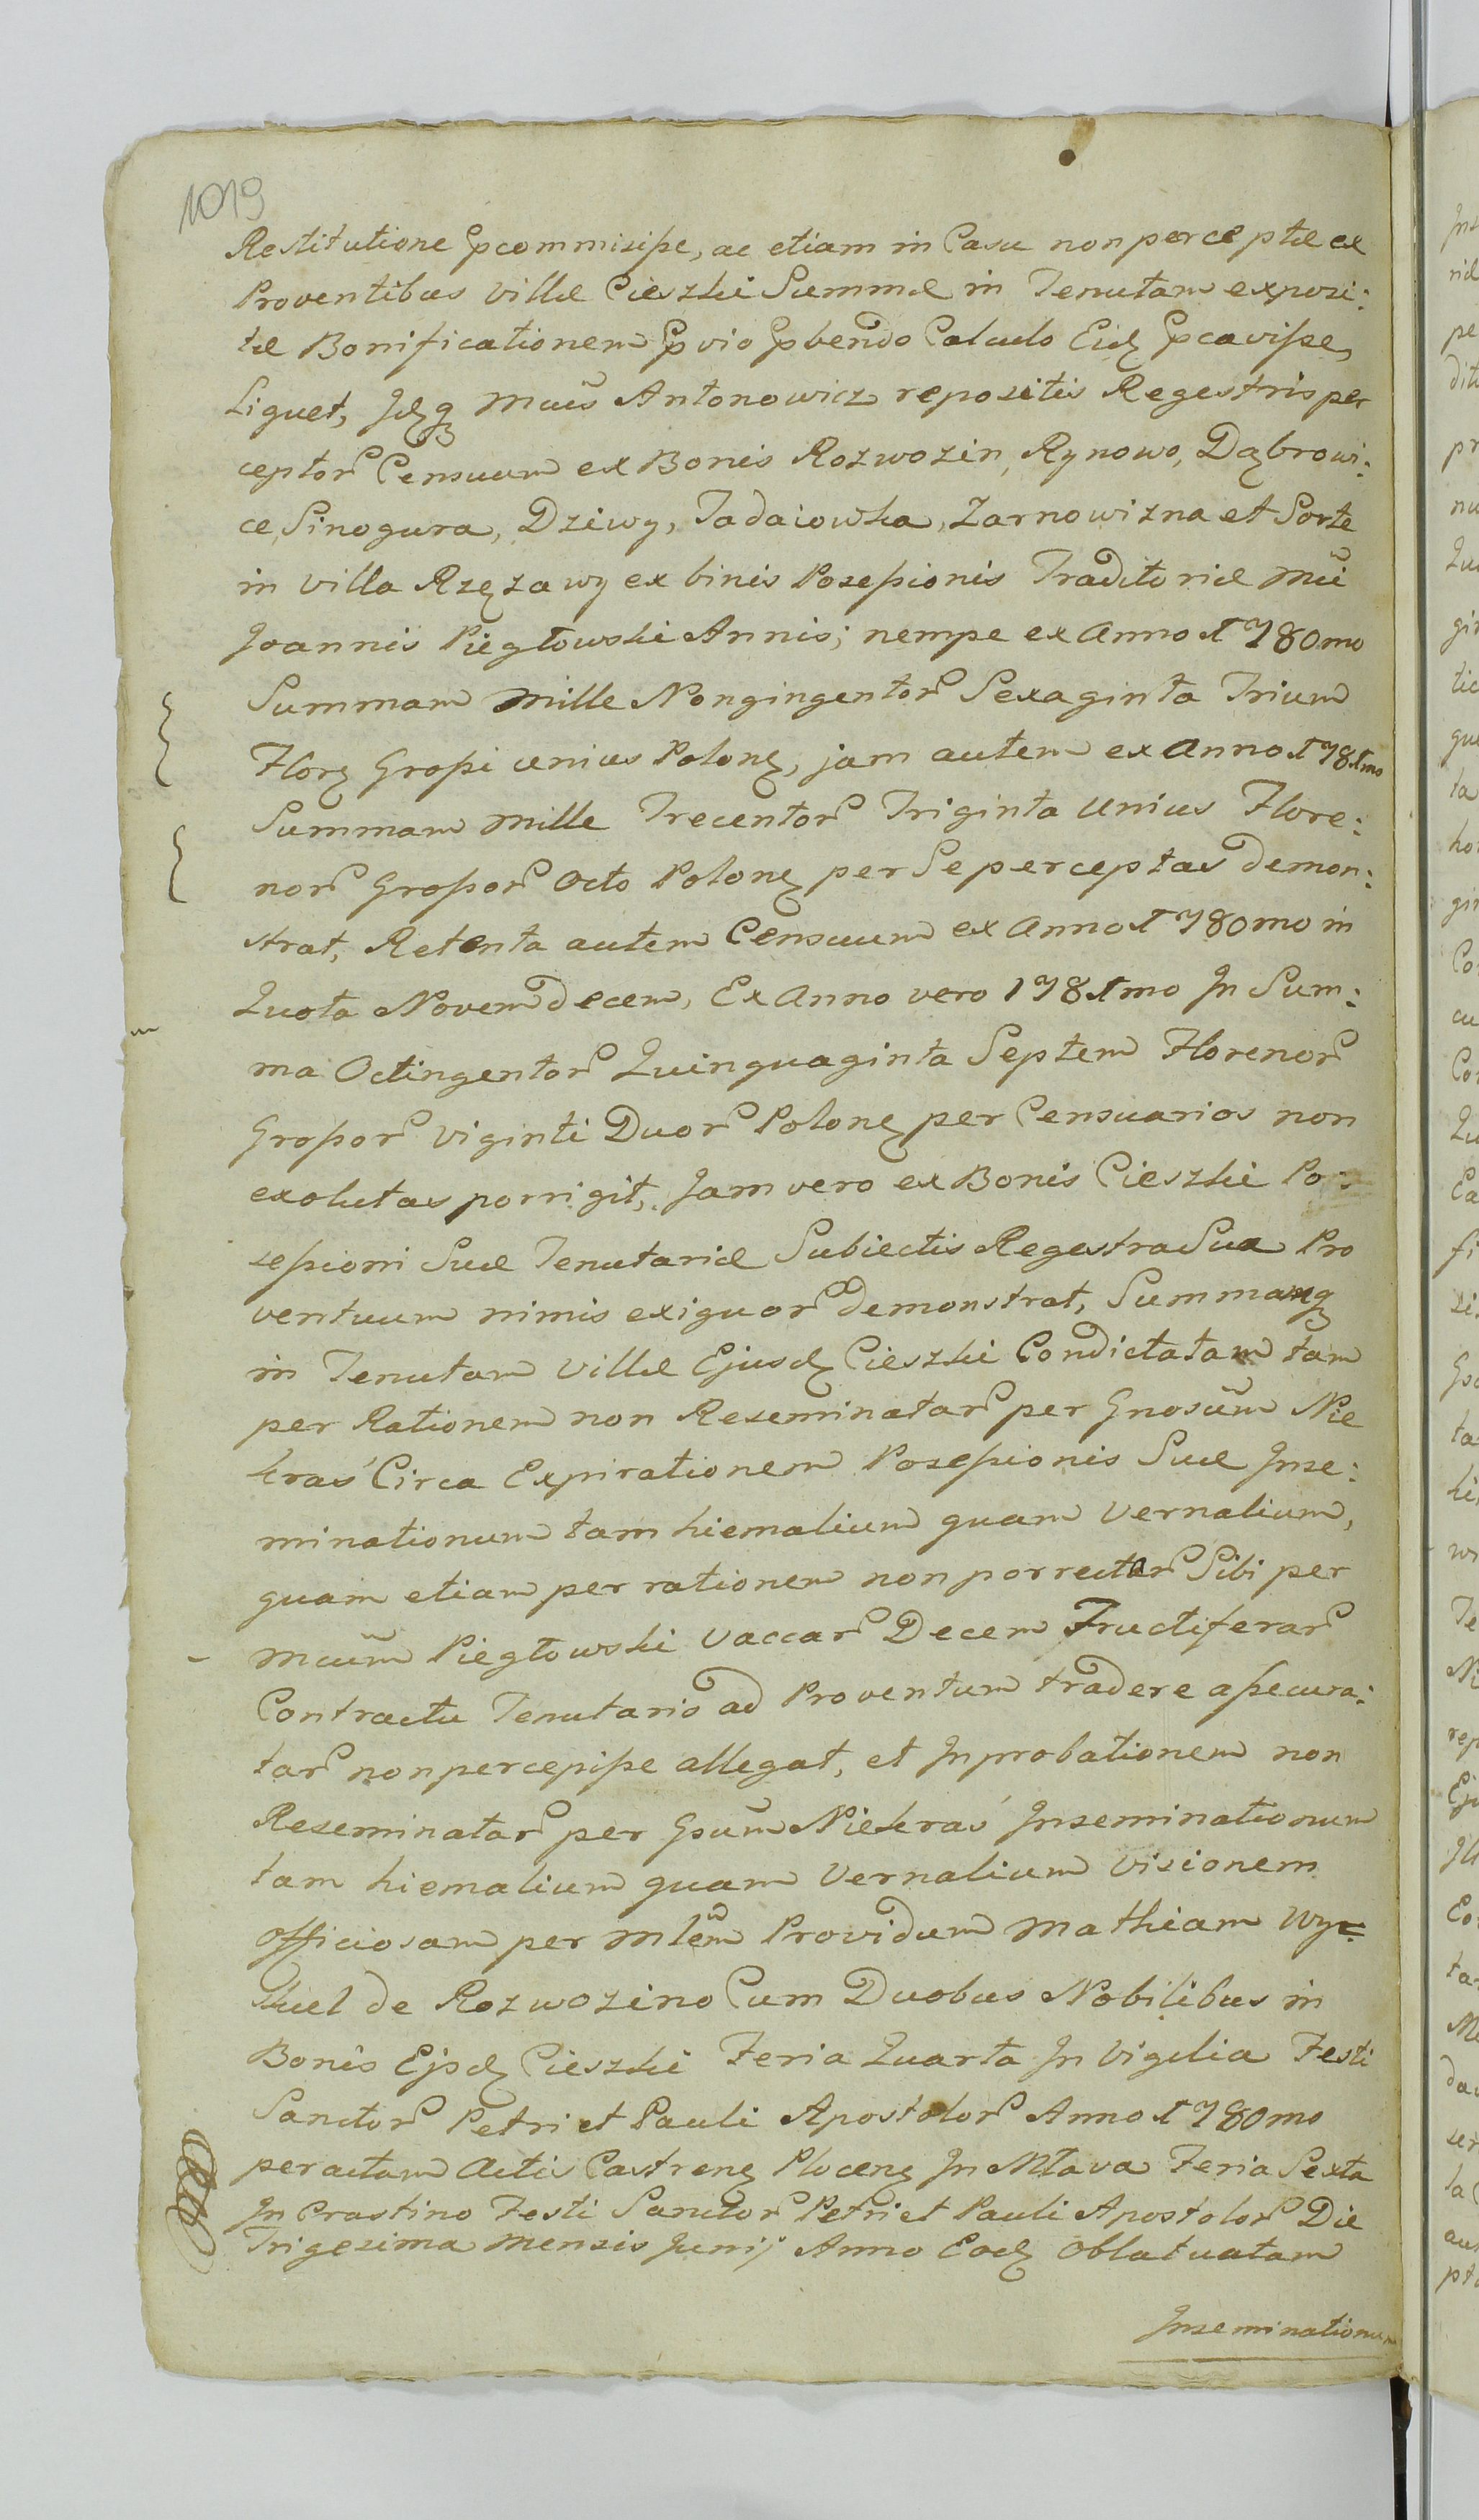 1019
Restitutione Præcommisisse, ac etiam in Casu non perceptæ ex
Proventibus Villæ Cieszki Summæ in Tenutam exposi:
tæ Bonificationem Prævio Præhendo Calculo Eidę Præcavisse,
Liquet, Jdęq Mcus Antonowicz repositis Regestris per
ceptor Censuum ex Bonis Rozwozin, Rynowo, Dąbrowi:
ce, Sinogura, Dziwy, Tadaiowka, Zarnowizna et Sorte
in villa Rzęzawy ex binis Posessionis Traditoriæ Mci
Joannis Piegłowski Annis; nempe ex Anno 1780mo
Summam Mille Nongingentor Sexaginta Trium
Florę Grossi unius Polonę, jam autem ex Anno 1781mo
Summam Mille Trecentor Triginta Unius Flore:
nor Grossor Octo Polonę per Se perceptas demon:
strat, Retenta autem Censuum ex Anno 1780mo in
Quota Novemdecem, Ex Anno vero 1781mo Jn Sum:
ma Octingentor Quinquaginta Septem Florenor
Grossor Viginti Duor Polonę per Censuarios non
exolutas porrigit, Jam vero ex Bonis Cieszki Po:
sessioni Suæ Tenutariæ Subiectis Regestra Sua Pro
ventuum nimis exiguor demonstrat, Summamq
in Tenutam Villæ Ejusdę Cieszki Condictatam tam
per Rationem non Reseminatar per Gnosum Nie
kraś Circa Expirationem Posessionis Suæ Jnse:
minationum tam hiemalium quam Vernalium,
quam etiam per rationem non porrectar Sibi per
Mcum Piegłowski Vaccar Decem Fructiferar
Contractu Tenutario ad Proventum tradere assecura:
tar non percepisse allegat, et Jnprobationem non
Reseminatar per Gsum Niekraś Jnseminationum
tam hiemalium quam Vernalium Visionem
officiosam per Mlem Providum Mathiam Wy:
kiel de Rozwozino Cum Duobus Nobilibus in
Bonis Ejsdę Cieszki Feria Quarta Jn Vigilia Festi
Sanctor Petri et Pauli Apostolor Anno 1780mo
peractam Actis Castrenę Plocenę Jn Mława Feria Sexta
Jn Crastino Festi Sanctor Petri et Pauli Apostolor Die
Trigesima Mensis Junij Anno Eodę Oblatuatam
Jnseminationum